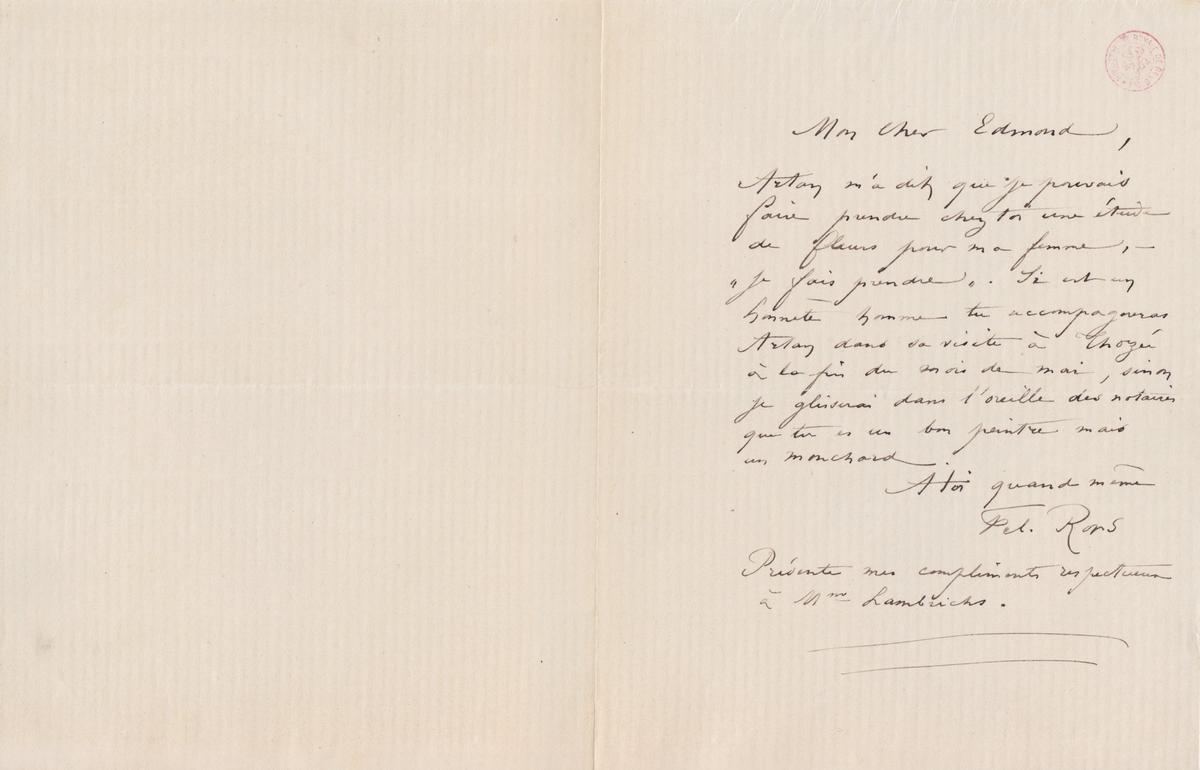 Mon cher Edmond,
Artan m'a dit que je pouvais
faire prendre chez toi une étude
de fleurs pour ma femme, –
"je fais prendre". Si est un
honnête homme tu accompagneras
Artan dans sa visite à Thozée
à la fin du mois de mai, sinon
je glisserai dans l'oreille des notaires
que tu es un bon peintre mais
un mouchard.
A toi quand même
Fél. Rops
Présente mes compliments respectueux
à Mme Lambrichs.